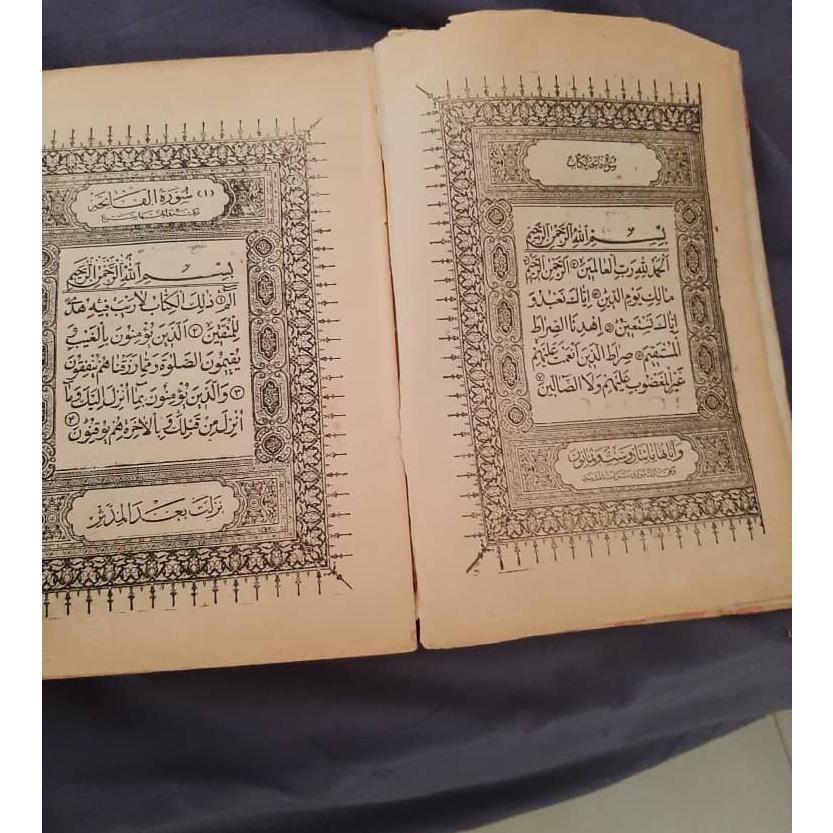 سورة فاتحة الكتاب
بِسْمِ اللهِ الرَّحْمٰنِ الرَّحِيمِ
الْحَمْدُ لِلّٰهِ رَبِّ الْعَالَمِينَ الرَّحْمٰنِ الرَّحِيمِ
مَالِكِ يَوْمِ الدِّينِ إِيَّاكَ نَعْبُدُ وَ
إِيَّاكَ نَسْتَعِينُ اِهْدِنَا الصِّرَاطَ
الْمُسْتَقِيمَ صِرَاطَ الَّذِينَ أَنْعَمْتَ عَلَيْهِمْ
غَيْرِ الْمَغْضُوبِ عَلَيْهِمْ وَلَا الضَّالِّينَ
وآياتها مائتان وست وثمانون
(١) سُورَةُ الفَاتِحَة
بِسْمِ اللهِ الرَّحْمٰنِ الرَّحِيمِ
الٓمٓ ١ ذٰلِكَ الْكِتَابُ لَا رَيْبَ فِيهِ هُدًى
لِلْمُتَّقِينَ ٢ الَّذِينَ يُؤْمِنُونَ بِالْغَيْبِ وَ
يُقِيمُونَ الصَّلٰوةَ وَمِمَّا رَزَقْنَاهُمْ يُنْفِقُونَ
٣ وَالَّذِينَ يُؤْمِنُونَ بِمَا أُنْزِلَ إِلَيْكَ وَمَا
أُنْزِلَ مِنْ قَبْلِكَ وَبِالْآخِرَةِ هُمْ يُوقِنُونَ ٤
نزلت بعد المدثر